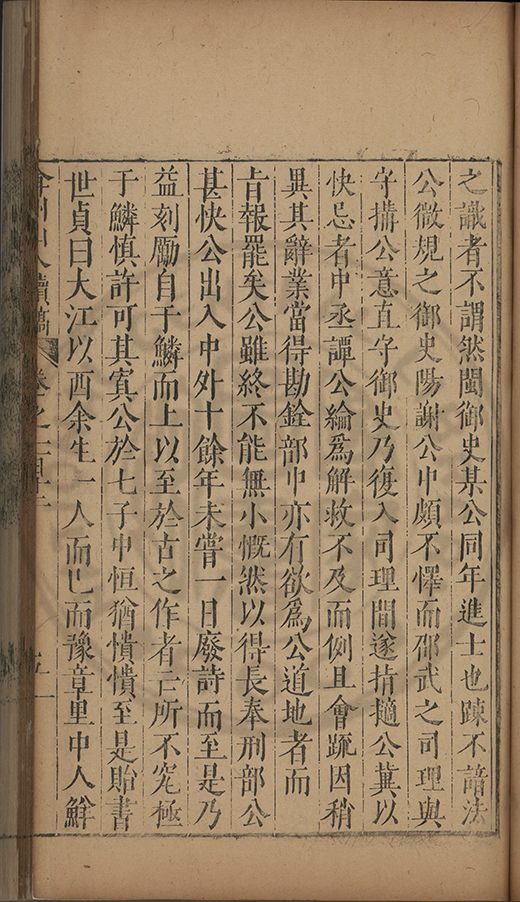 之識者不謂然閩御史某公同年進士也踈不諳法
公微規之御史陽謝公中頗不懌而邵武之司理與
守搆公意直守御史乃復入司理間遂掯擿公冀以
快忌者中丞譚公綸爲解救不及而例且會䟽因稍
異其辭業當得勘銓部中亦有欲爲公道地者而
㫖報罷矣公雖終不能無小慨然以得長奉刑部公
甚快公出入中外十餘年未嘗一日廢詩而至是乃
益刻勵自于鱗而上以至於古之作者亡所不究極
于鱗慎許可其寘公於七子中恒猶憒憒至是貽書
世貞曰大江以西余生一人而已而豫章里中人鮮
弇州山人續稿 卷之一百